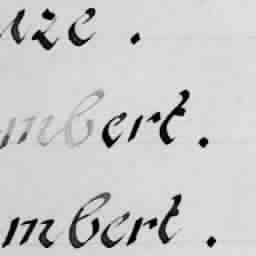 uze.
mbert.
mbert.